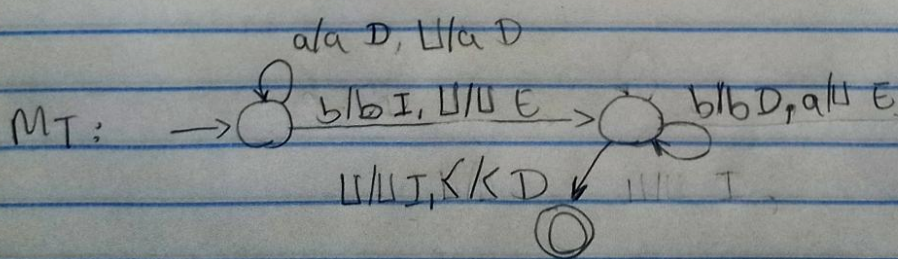 a/a D, ⊔/a D
MT: b/b I, ⊔/⊔ E b/b D, a/⊔ E
⊔/⊔ I, K/K D